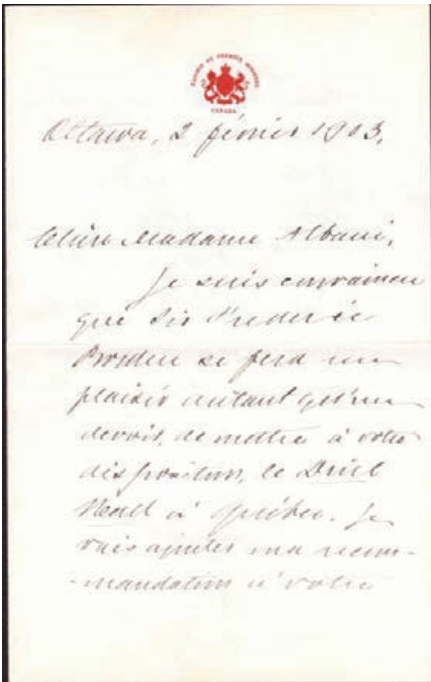 CABINET DU PREMIER MINISTRE
CANADA
Ottawa, 2 février 1903.
Chère Madame Albani,
Je suis convaincu
que Sir Frederic
Borden se fera un
plaisir autant qu'un
devoir, de mettre à votre
disposition, le Drill
Hall à Québec. Je
vais ajouter ma recom-
-mandation à votre